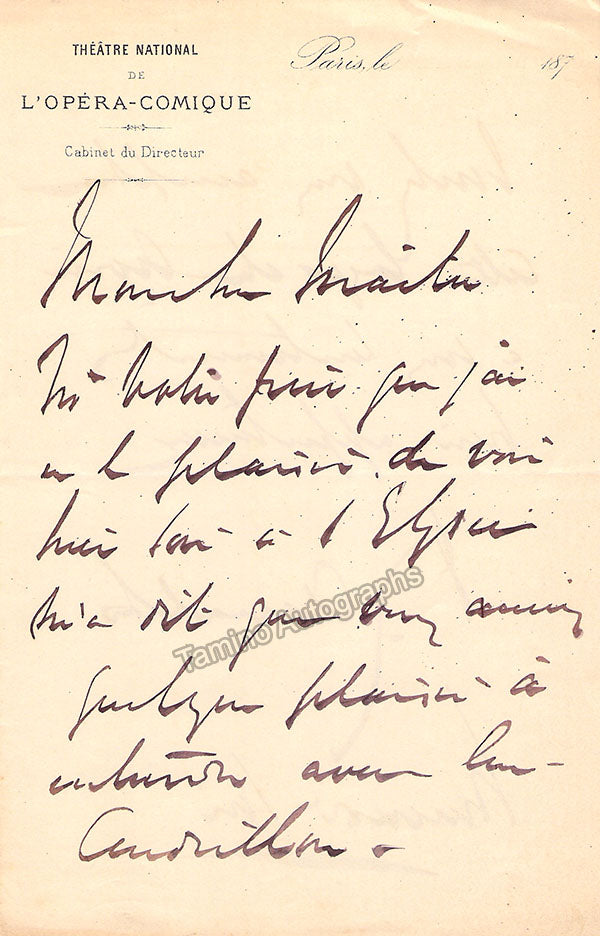 THÉÂTRE NATIONAL
DE
L'OPÉRA-COMIQUE
Cabinet du Directeur
Paris, le 187
Mon cher Maître
Votre que j'ai
eu le plaisir de voir
hier soir à l'Elysée
m'a dit que vous auriez
quelque plaisir à
entendre avec
Cendrillon
Tamino Autographs